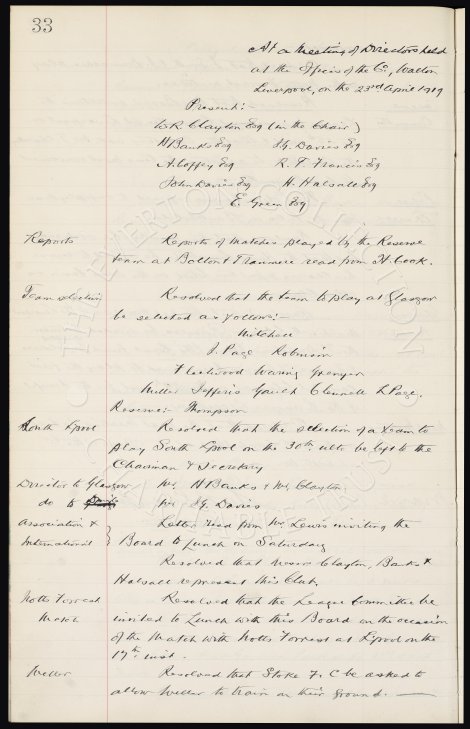 33
At a Meeting of Directors held
at the Offices of the Co, Walton
Liverpool, on the 23rd April 1919
Present:-
W.R. Clayton Esq (in the Chair)
H Banks Esq
A. Coffey Esq R. F. Francis Esq
John Davies Esq H. Halsall Esq
E. Green Esq
Reports Reports of Matches played by the Reserve
team at Bolton & Tranmere read from H. Cook.
Team selection Resolved that the team to play at Glasgow
be selected as follows:-
Mitchell
J. Page Robinson
Fleetwood Waring Grenyer
Miller Jefferis Gault Clennell L Page.
Reserve:- Thompson
South Lpool Resolved that the selection of a team to
play South Lpool on the 30th ulto be left to the
Chairman & Secretary
Director to Glasgow Mr H Banks & Mr Clayton.
do to Mr Davies
Association & Letter read from Mr Lewis inviting the
International } Board to Lunch on Saturday
Resolved that Clayton, Banks &
Halsall represent this Club.
Notts Forrest Resolved that the League Committee be
Match invited to Lunch with this Board on the occasion
of the Match with Notts Forrest at Lpool on the
17th inst.
Weller Resolved that Stoke F.C be asked to
allow Weller to train on their ground.